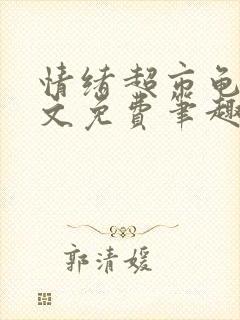 情绪超市龟
文免费笔趣
郭清媛